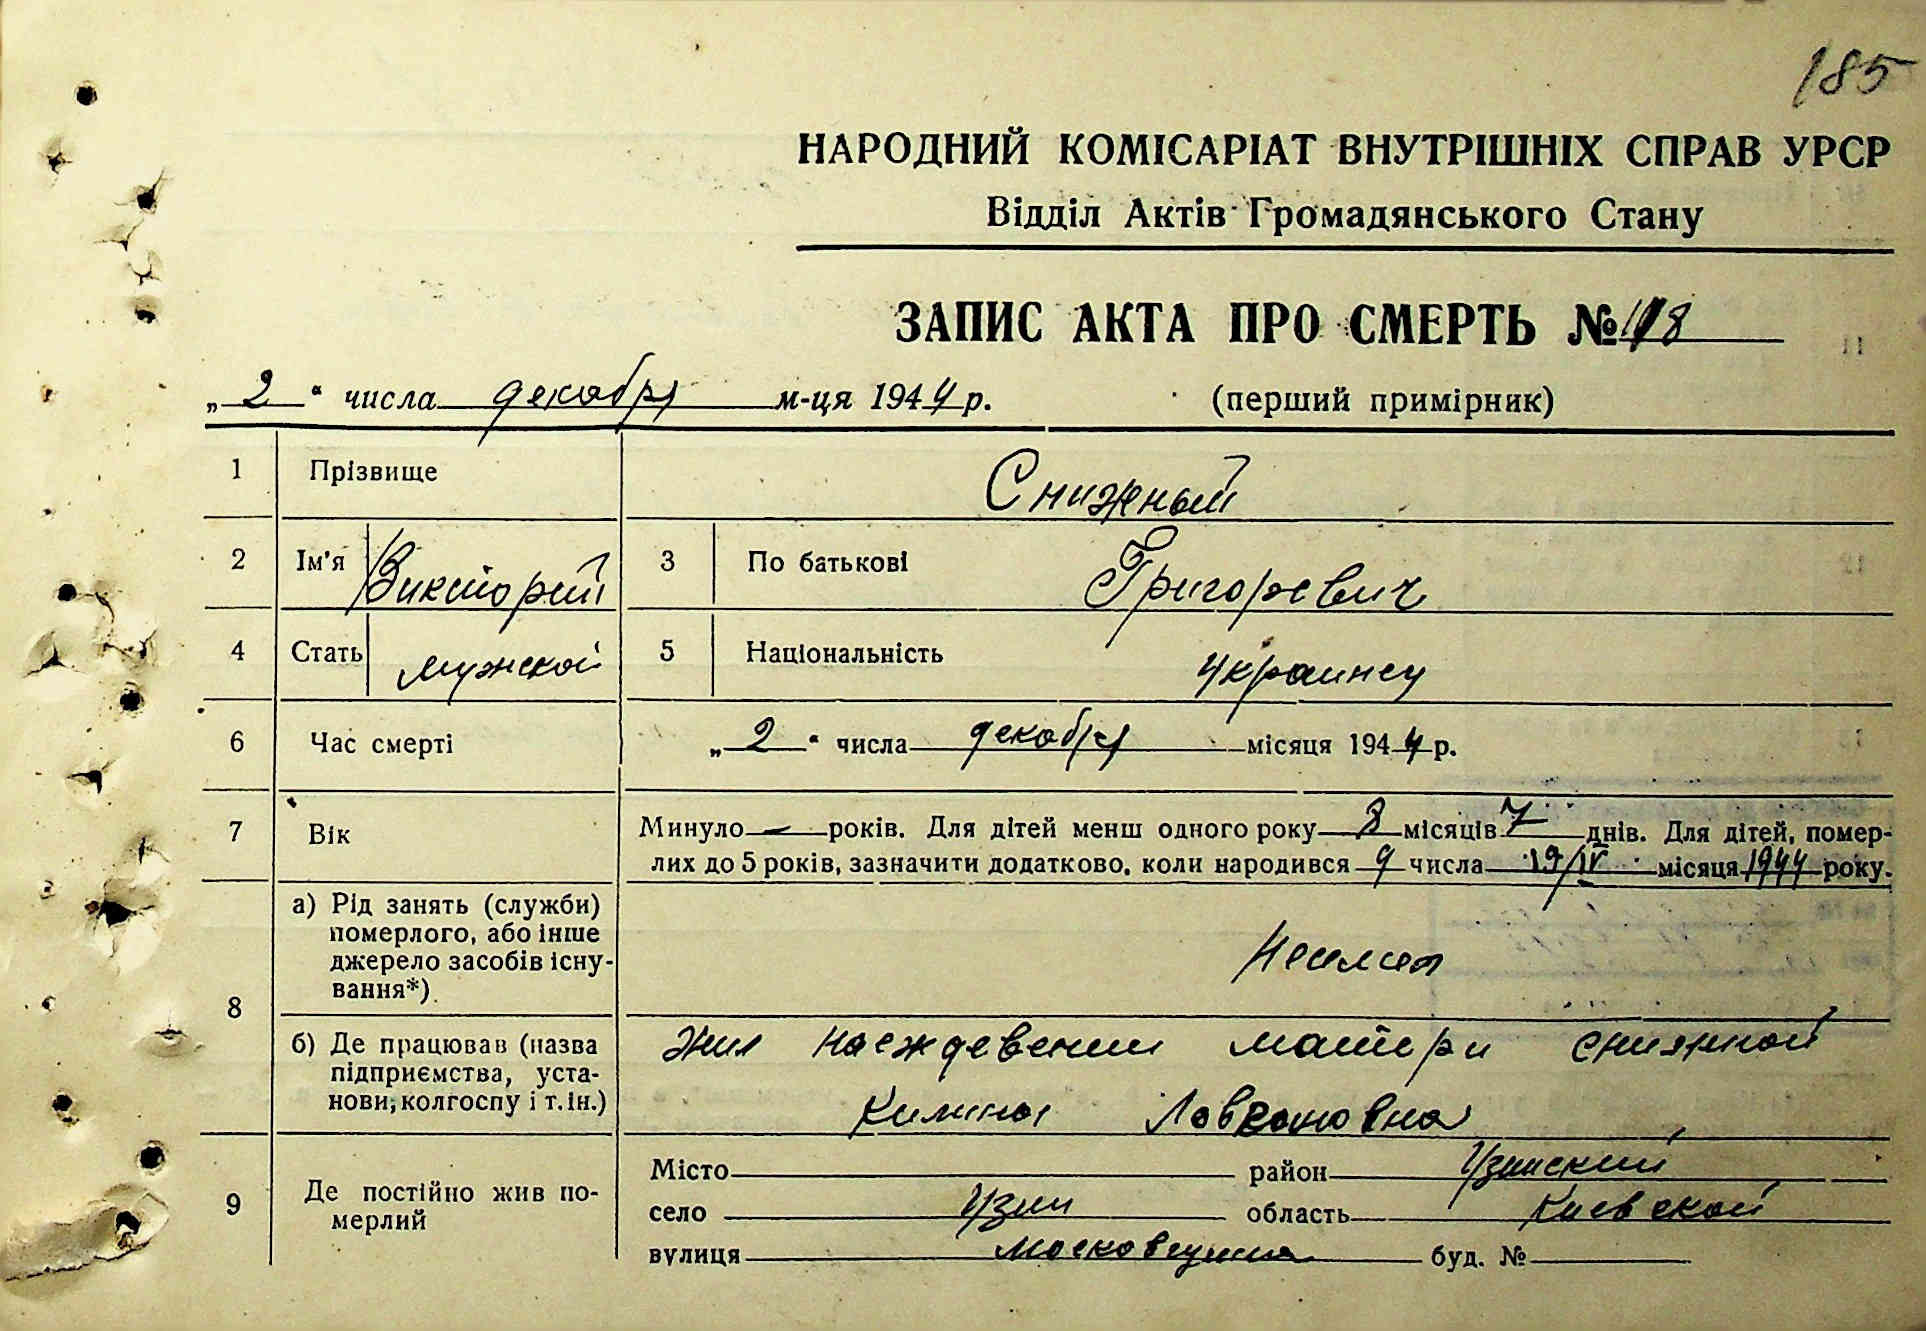 185
НАРОДНИЙ КОМІСАРІАТ ВНУТРІШНІХ СПРАВ УРСР
Відділ Актів Громадянського Стану
ЗАПИС АКТА ПРО СМЕРТЬ № 118
„2“ числа декабря м-ця 1944 р. (перший примірник)
1 Прізвище Снижный
2 Ім'я Викторий 3 По батькові Григоревич
4 Стать мужской 5 Національність украинец
6 Час смерті „2“ числа декабря місяця 1944 р.
7 Вік Минуло — років. Для дітей менш одного року 8 місяців 7 днів. Для дітей, помер-
лих до 5 років, зазначити додатково, коли народився 9 числа 19/IV місяця 1944 року.
8 а) Рід занять (служби)
померлого, або інше
джерело засобів існу-
вання*)
б) Де працював (назва
підприємства, уста-
нови, колгоспу і т. ін.)
Жил на еждевении матери Снижной
Килина
9 Де постійно жив по-
мерлий
Місто район Узинский
село Узин область Киевской
вулиця буд. №